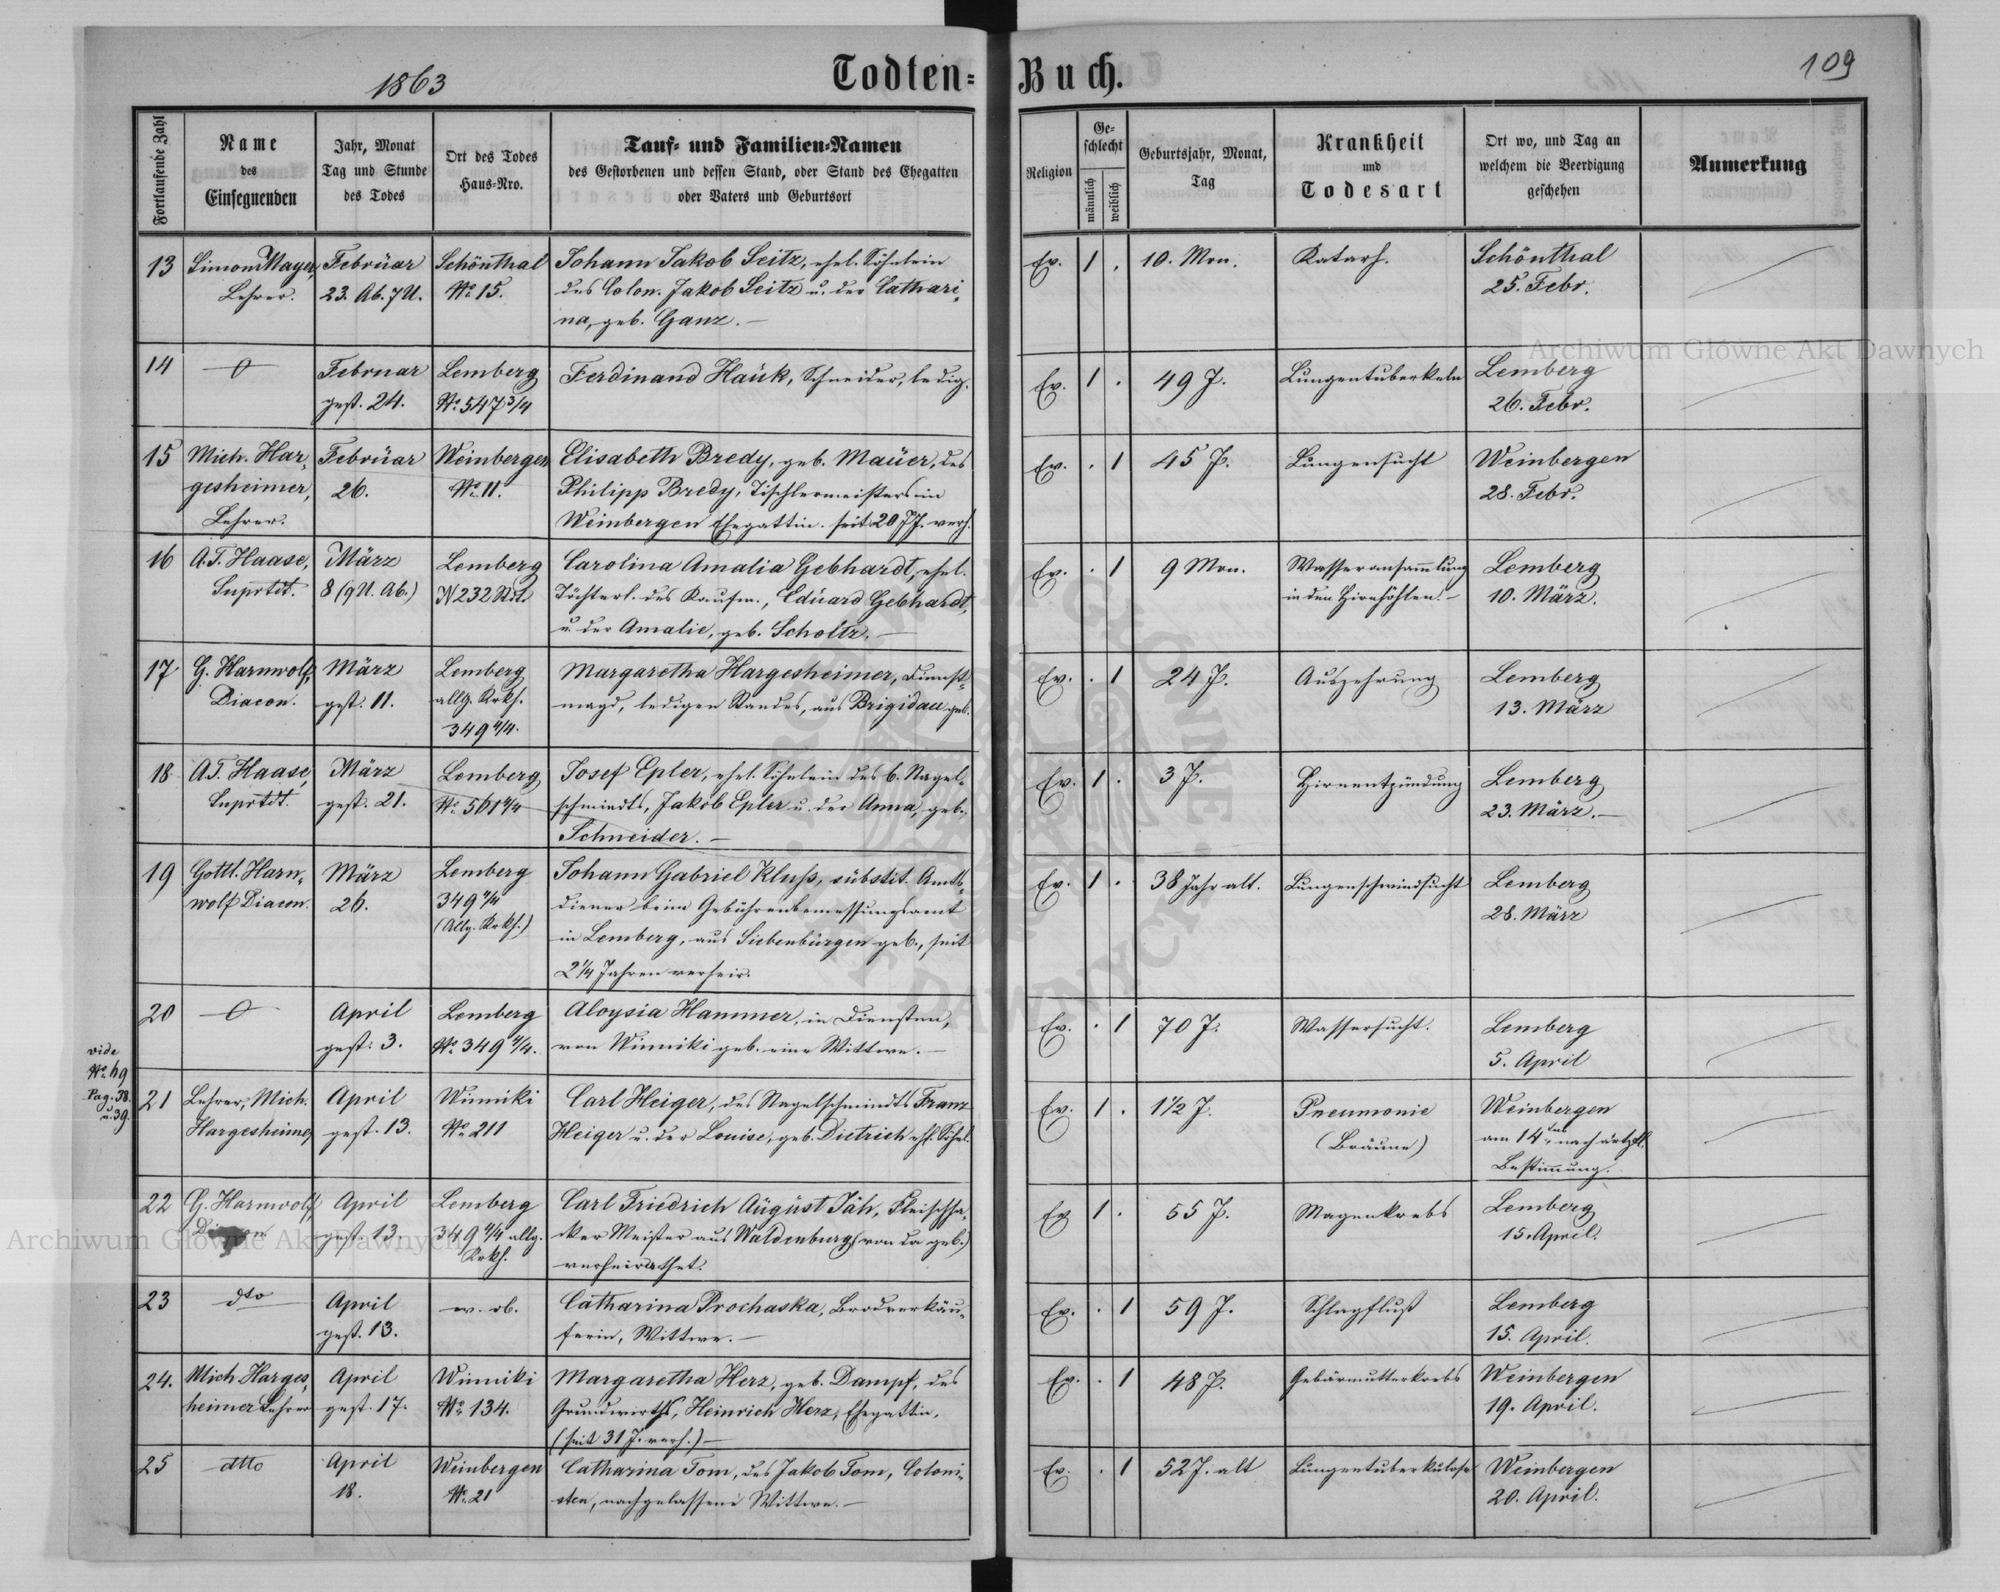 1863
Todten-
Buch.
109
Fortlaufende Zahl
Name
des
Einsegnenden
Jahr, Monat
Tag und Stunde
des Todes
Ort des Todes
Haus-Nro.
Tauf- und Familien-Namen
des Gestorbenen und dessen Stand, oder Stand des Ehegatten
oder Vaters und Geburtsort
Religion
Ge-
schlecht
männlich
weiblich
Geburtsjahr, Monat,
Tag
Krankheit
und
Todesart
Ort wo, und Tag an
welchem die Beerdigung
geschehen
Anmerkung
13 Simon Mayer, Februar Schönthal Johann Jakob Seitz, ehel. Söhnlein Ev. 1 . 10. Mon. Katarh. Schönthal
Lehrer. 23. Ab. 7 U. No. 15. des Colon. Jakob Seitz u. der Cathari- 25. Febr.
na, geb. Ganz. —
14 Februar Lemberg Ferdinand Hauk, Schneider, ledig. Ev. 1 . 49 J. Lungentuberkeln Lemberg
gest. 24. No. 547 3/4 26. Febr.
15 Mich. Har- Februar Weinbergen Elisabeth Bredy, geb. Mauer, des Ev. . 1 45 J. Lungensucht Weinbergen
gesheimer, 26. No. 11. Philipp Bredy, Tischlermeisters in 28. Febr.
Lehrer. Weinbergen Ehegattin. seit 20 JJ. verh.
16 A.T. Haase, März Lemberg Carolina Amalia Gebhardt, ehel. Ev. . 1 9 Mon. Wasseransammlung Lemberg
Suprtdt. 8 (9 U. Ab.) N 232 St. Töchterl. des Kaufm., Eduard Gebhardt, in den Hirnhöhlen. — 10. März.
u. der Amalie, geb. Scholtz. —
17 G. Harnwolf, März Lemberg Margaretha Hargesheimer, Dienst- Ev. . 1 24 J. Auszehrung Lemberg
Diacon. gest. 11. allg. Krkh. magd, ledigen Standes, aus Brigidau geb. 13. März
349 4/4.
18 A.T. Haase, März Lemberg Josef Epler, ehel. Söhnlein des b. Nagel- Ev. 1 . 3 J. Hirnentzündung Lemberg
Suprtdt. gest. 21. No. 561 4/4 schmiedts, Jakob Epler u. der Anna, geb. 23. März. —
Schneider. —
19 Gottl. Harn- März Lemberg Johann Gabriel Kluß, substit. Amts- Ev. 1 . 38 Jahr alt. Lungenschwindsucht Lemberg
wolf Diacon. 26. 349 4/4 diener beim Gebührenbemessungsamt 28. März
(Allg. Krkh.) in Lemberg, aus Siebenbürgen geb., seit
2 1/4 Jahren verheir.
20 April Lemberg Aloysia Hammer, in Diensten, Ev. . 1 70 J. Wassersucht. Lemberg
gest. 3. No. 349 4/4. von Winniki geb. eine Wittwe. — 5. April
vide
No. 49
Pag. 38.
u. 39.
21 Lehrer, Mich. April Winniki Carl Heiger, des Nagelschmiedts Franz Ev. 1 . 1 1/2 J. Pneumonie Weinbergen
Hargesheimer gest. 13. No. 211 Heiger u. der Louise, geb. Dietrich ehl. Söhnl. (Bräune) am 14ten, nach ärtzl.
Bestimmung.
22 G. Harnwolf, April Lemberg Carl Friedrich August Jäh, Fleischha- Ev 1 . 55 J. Magenkrebs Lemberg
gest. 13. 349 4/4 allg. cker Meister aus Waldenburg (von da geb.) 15. April.
Krkh. verheirathet.
23 dto April w. ob. Catharina Prochaska, Brodverkäu- Ev. . 1 59 J. Schlagfluß Lemberg
gest. 13. ferin, Wittwe. — 15. April.
24. Mich Harges- April Winniki Margaretha Herz, geb. Dampf, des Ev. . 1 48 J. Gebärmutterkrebs Weinbergen
heimer Lehrer gest. 17. No. 134. Grundwirths, Heinrich Herz, Ehegattin, 19. April.
(seit 31 J. verh.) —
25 dtto April Weinbergen Catharina Tom, des Jakob Tom, Coloni- Ev. . 1 52 J. alt Lungentuberkulose Weinbergen
18. No. 21 sten, nachgelassene Wittwe. — 20. April.
Archiwum Główne Akt Dawnych
Archiwum Główne Akt Dawnych